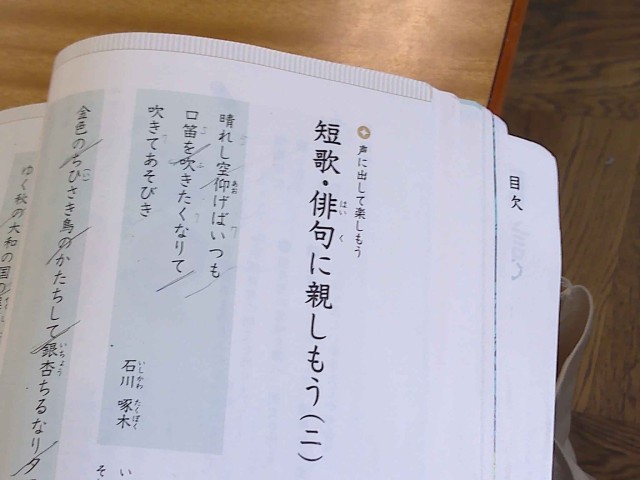 目次
声に出して楽しもう
短歌・俳句に親しもう（二）
はいく
晴れし空仰げばいつも
あお
口笛を吹きたくなりて
ふ
吹きてあそびき
石川 啄木
いしかわ たくぼく
金色のちひさき鳥のかたちして銀杏ちるなり夕
いちょう
ゆく秋の大和の国の